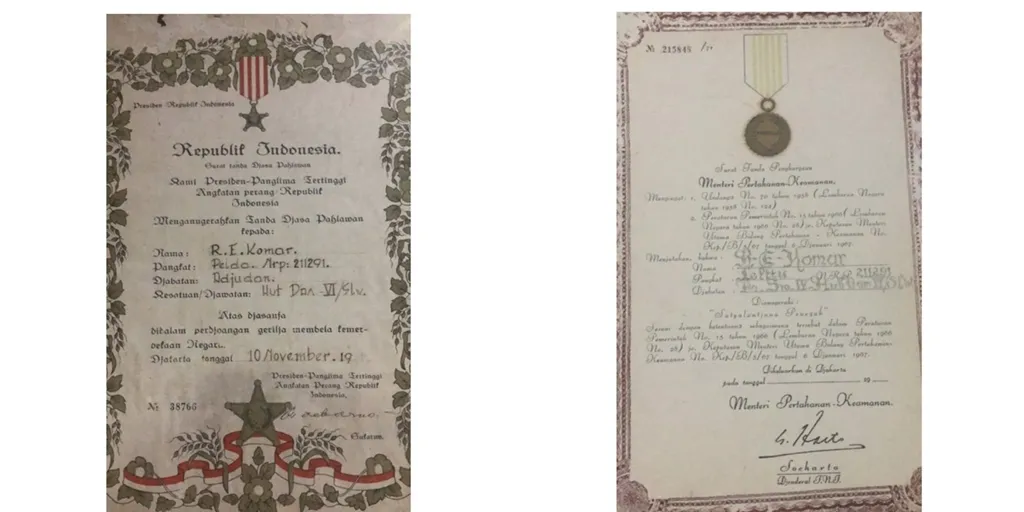 Presiden Republik Indonesia
Republik Indonesia.
Surat tanda Djasa Pahlawan
Kami Presiden-Panglima Tertinggi
Angkatan perang Republik
Indonesia
Menganugerahkan Tanda Djasa Pahlawan
kepada:
Nama: R.E.Komar.
Pangkat: Pelda. Nrp: 211291.
Djabatan: Adjudan.
Kesatuan/Djawatan: Hub Dam VI/Slw.
Atas djasanja
didalam perdjoangan gerilja membela kemer-
dekaan Negara.
Djakarta tanggal 10 November. 19
Presiden-Panglima Tertinggi
Angkatan Perang Republik
Indonesia,
№ 38766
Sukarno.
№ 215848
Surat Tanda Penghargaan
Menteri Pertahanan-Keamanan.
Mengingat: 1. Undang2 No. 70 tahun 1958 (Lembaran Negara
tahun 1958 No. 124)
2. Peraturan Pemerintah No. 15 tahun 1960 (Lembaran
Negara tahun 1960 No. 28) jo. Keputusan Menteri
Utama Bidang Pertahanan - Keamanan No.
Kep./B/2/67 tanggal 6 Djanuari 1967.
Menjatakan, bahwa: R-E-Komar
Nama
Pangkat NRP 211291
Djabatan
Dianugerahi:
"Satyalentjana Penegak"
Sesuai dengan ketentuan2 sebagaimana tersebut dalam Peraturan
Pemerintah No. 15 tahun 1960 (Lembaran Negara tahun 1960
No. 28) jo. Keputusan Menteri Utama Bidang Pertahanan-
Keamanan No. Kep./B/2/67 tanggal 6 Djanuari 1967.
Dikeluarkan di Djakarta
pada tanggal 19
Menteri Pertahanan-Keamanan.
Soeharto
Djenderal T.N.I.